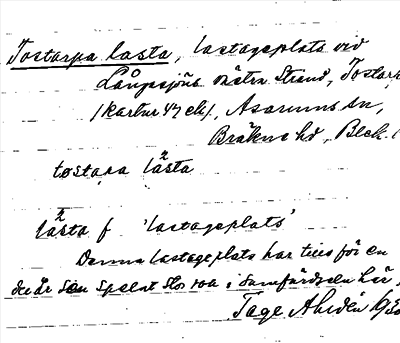 Tostarpa lasta, lastageplats vid
Långasjöns östra Strand, Tostarp
/kartur 47 ek/, Asarums sn,
Bräkne hd, Blek.
tostapa låsta
låsta f 'lastageplats'
Denna lastageplats har för en
del år sen spelat stor roll i samfärdseln här.
Tage Ahldén